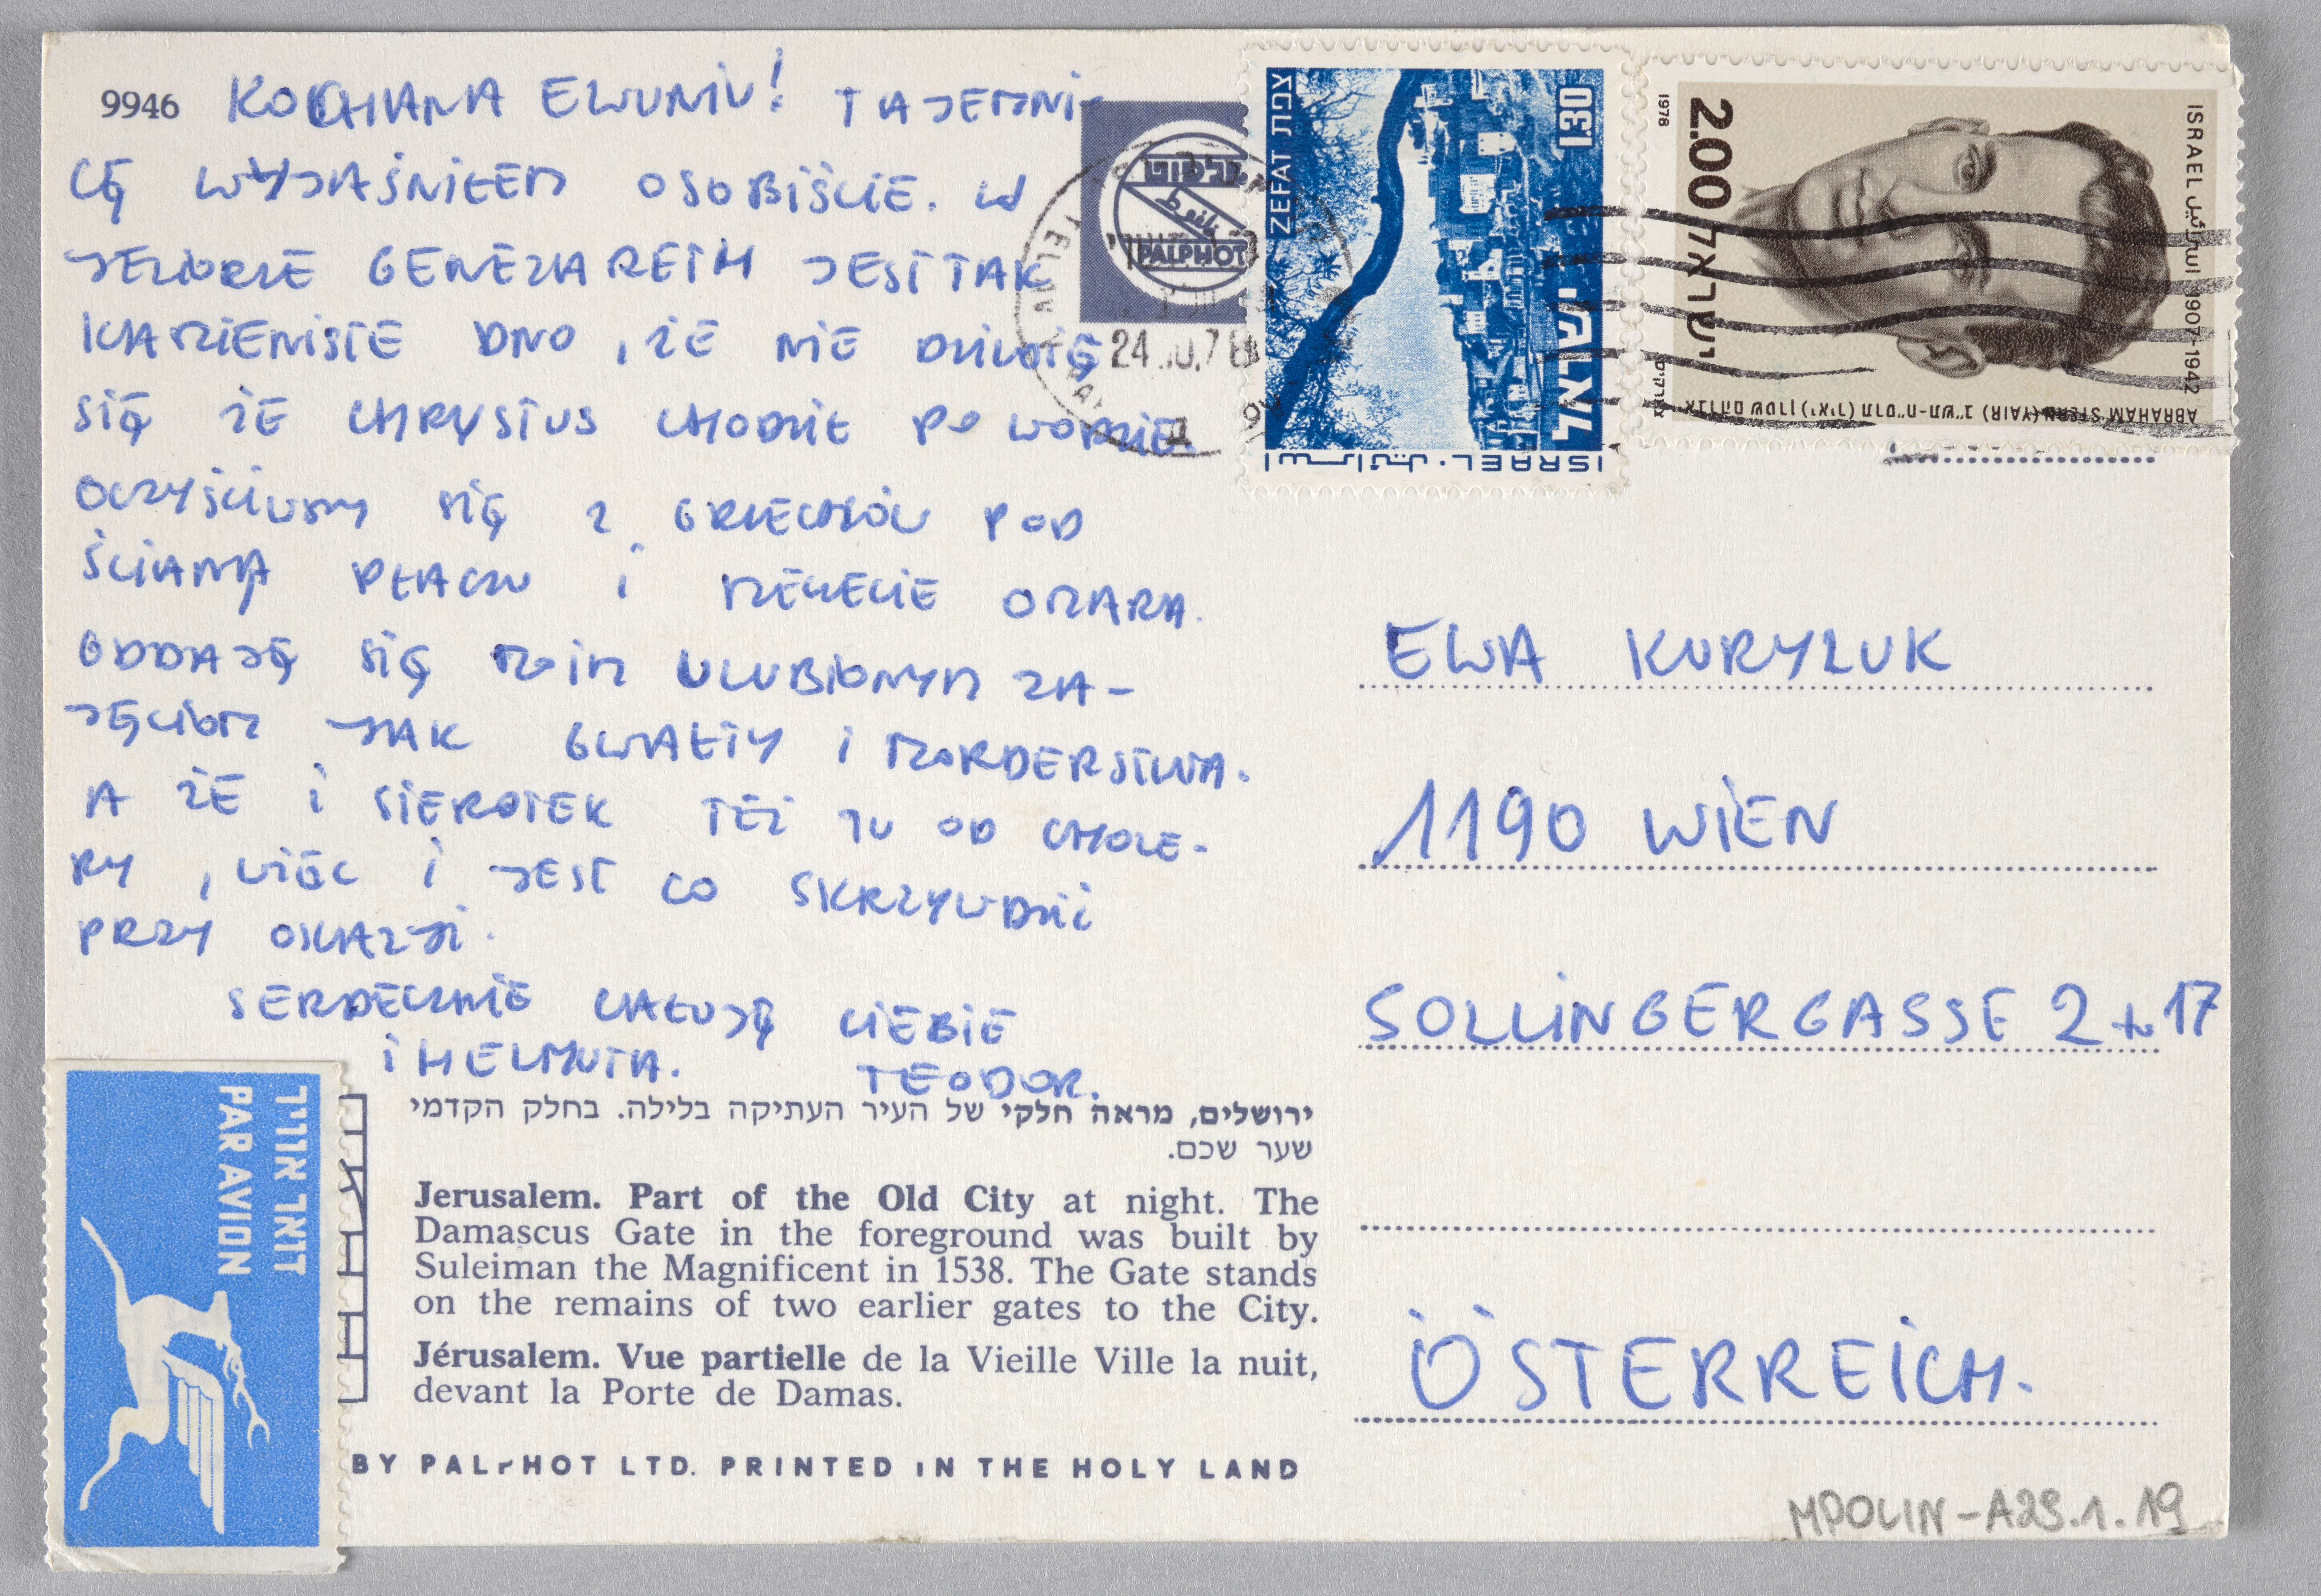 9946 KOCHANA EWUNIU! TAJEMNI-
CĘ WYJAŚNIŁEM OSOBIŚCIE. W
JEZIORZE GENEZARETH JEST TAK
KAMIENISTE DNO, ŻE NIE DZIWIĘ
SIĘ ŻE CHRYSTUS CHODZIŁ PO WODZIE.
OCZYŚCIŁEM SIĘ Z GRZECHÓW POD
ŚCIANĄ PŁACZU I MECZECIE OMARA.
ODDAJĘ SIĘ MOIM ULUBIONYM ZA-
JĘCIOM JAK GWAŁTY I MORDERSTWA.
A ŻE I SIEROTEK TEŻ TU OD CHOLE-
RY, WIĘC I JEST CO SKRZYWDZIĆ
PRZY OKAZJI.
SERDECZNIE CAŁUJĘ CIEBIE
I HELMUTA. TEODOR.
פלפוט
بالفوط
PALPHOT
TEL AVIV
24.10.78
צפת ZEFAT
1.30
ישראל
ISRAEL · اسرائيل
1978
2.00
ישראל
ISRAEL اسرائيل 1907-1942
ABRAHAM STERN (YAIR) אברהם שטרן (יאיר) תרס"ח-תש"ב
EWA KURYLUK
1190 WIEN
SOLLINGERGASSE 2 17
ÖSTERREICH.
דואר אוויר
PAR AVION
ירושלים, מראה חלקי של העיר העתיקה בלילה. בחלק הקדמי
שער שכם.
Jerusalem. Part of the Old City at night. The
Damascus Gate in the foreground was built by
Suleiman the Magnificent in 1538. The Gate stands
on the remains of two earlier gates to the City.
Jérusalem. Vue partielle de la Vieille Ville la nuit,
devant la Porte de Damas.
BY PALPHOT LTD. PRINTED IN THE HOLY LAND
MPOLIN-A29.1.19